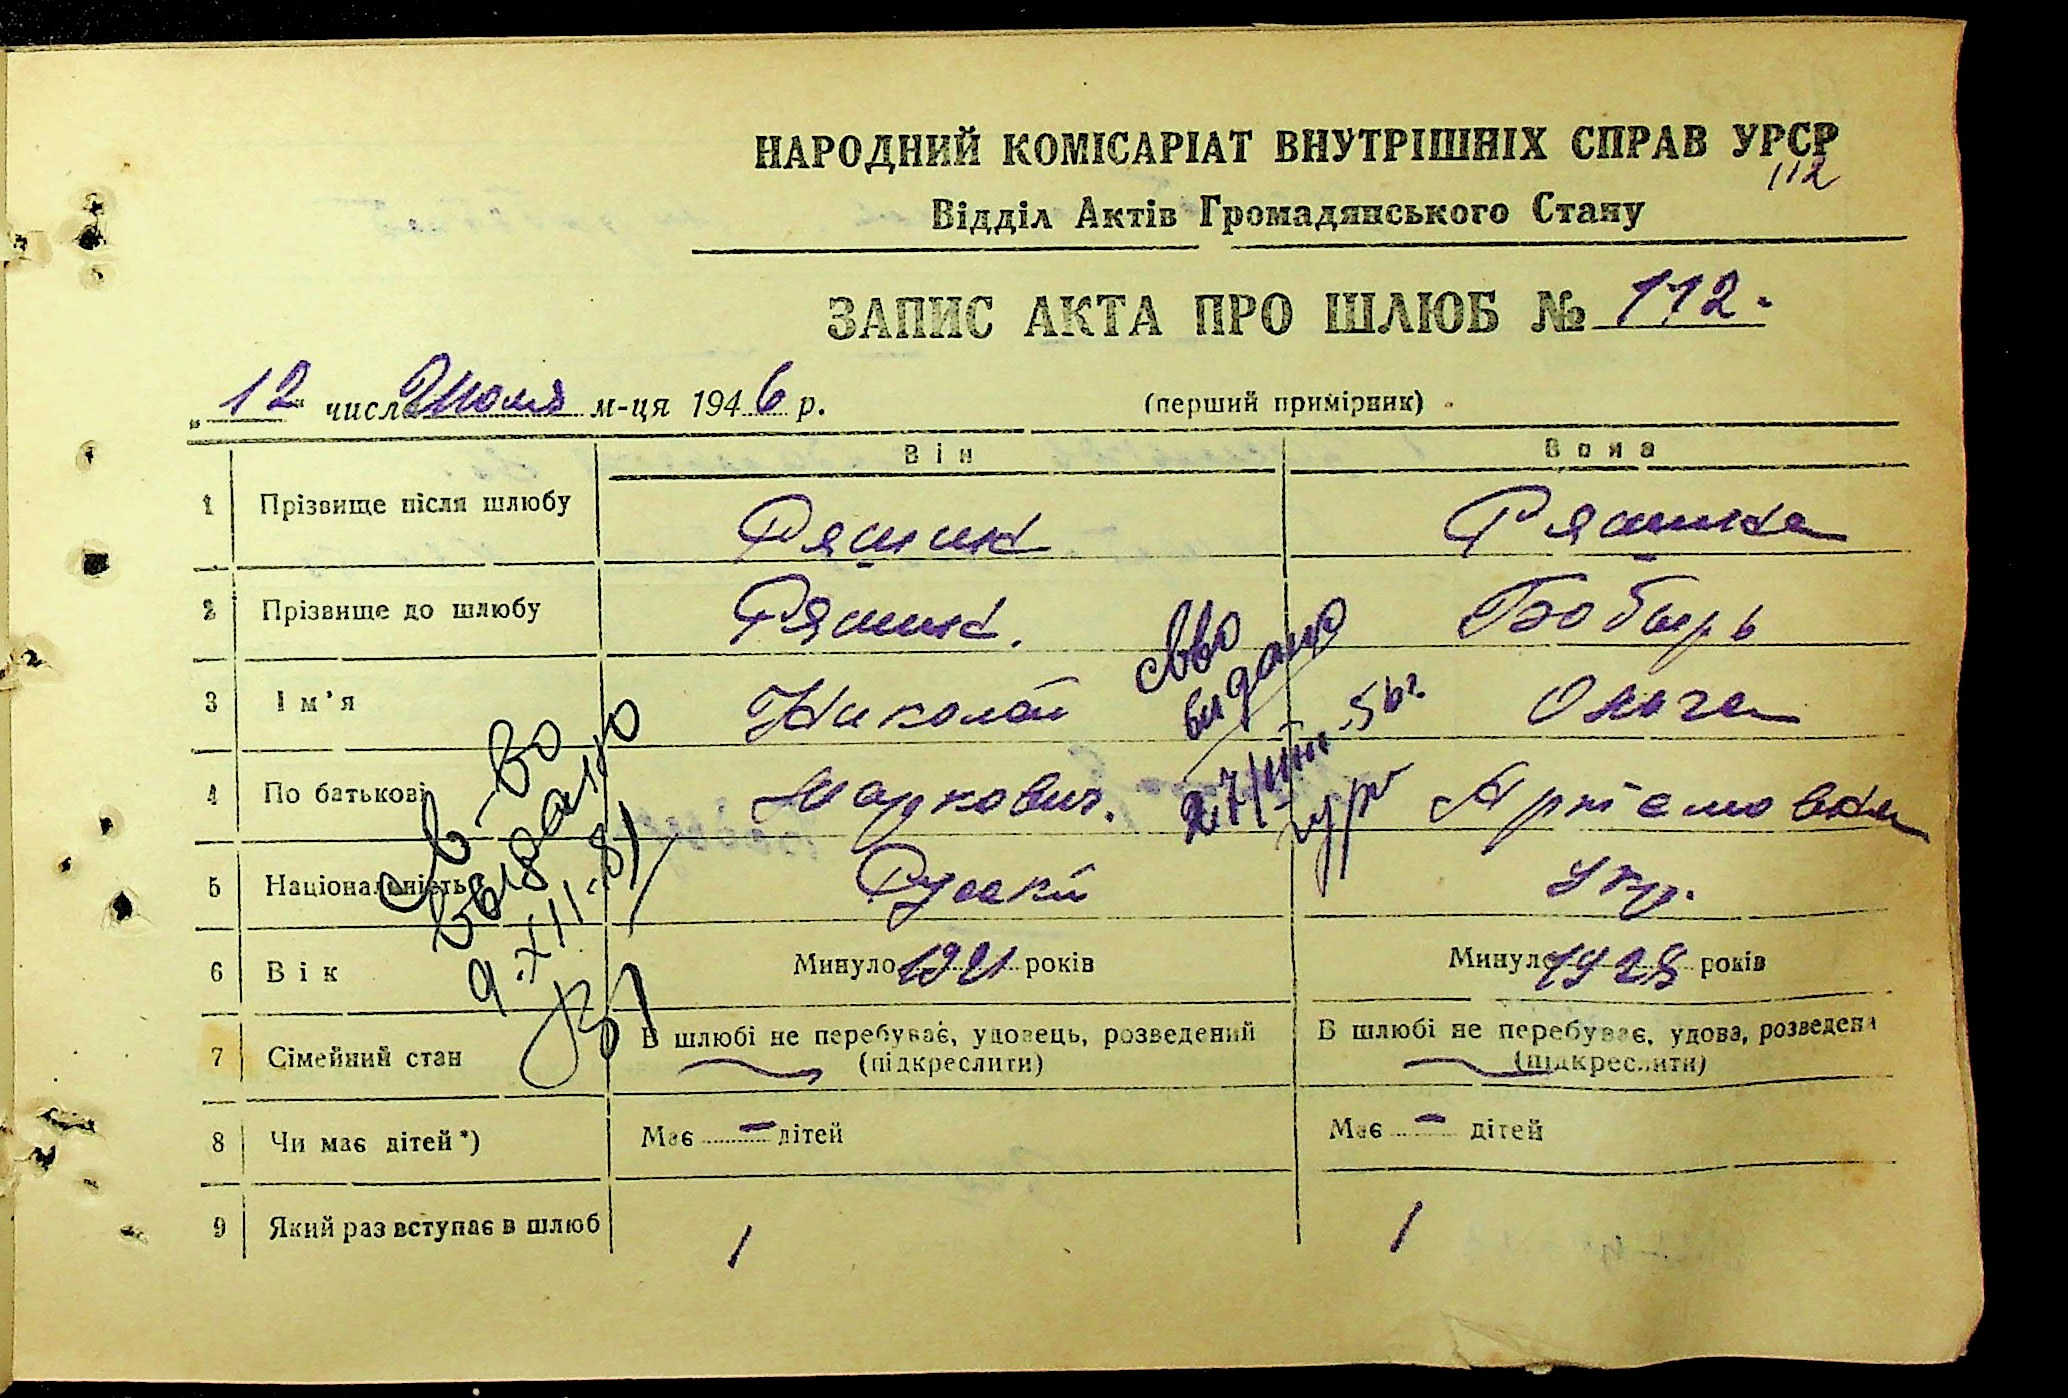 НАРОДНИЙ КОМІСАРІАТ ВНУТРІШНІХ СПРАВ УРСР
112
Відділ Актів Громадянського Стану
ЗАПИС АКТА ПРО ШЛЮБ № 112.
„12“ числа Июля м-ця 1946 р. (перший примірник)
Він Вона
1 Прізвище після шлюбу
2 Прізвище до шлюбу Бобырь
3 Ім'я Николай Ольга
4 По батькові Маркович. Артемовна
5 Національність Руский Укр.
6 Вік Минуло 1921 років Минуло 1928 років
7 Сімейний стан В шлюбі не перебуває, удовець, розведений В шлюбі не перебуває, удова, розведена
(підкреслити) (підкреслити)
8 Чи має дітей*) Має – дітей Має – дітей
9 Який раз вступає в шлюб 1 1
св-во
выдано
9.XII-81
видано
27/VIII-56г